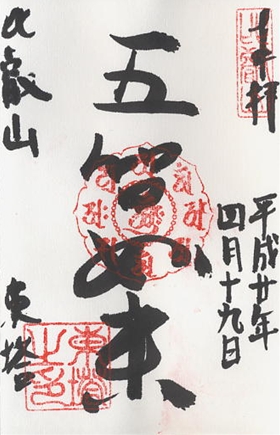 奉拝
平成廿年
四月十九日
五智如来
比叡山
東塔
東塔
之印